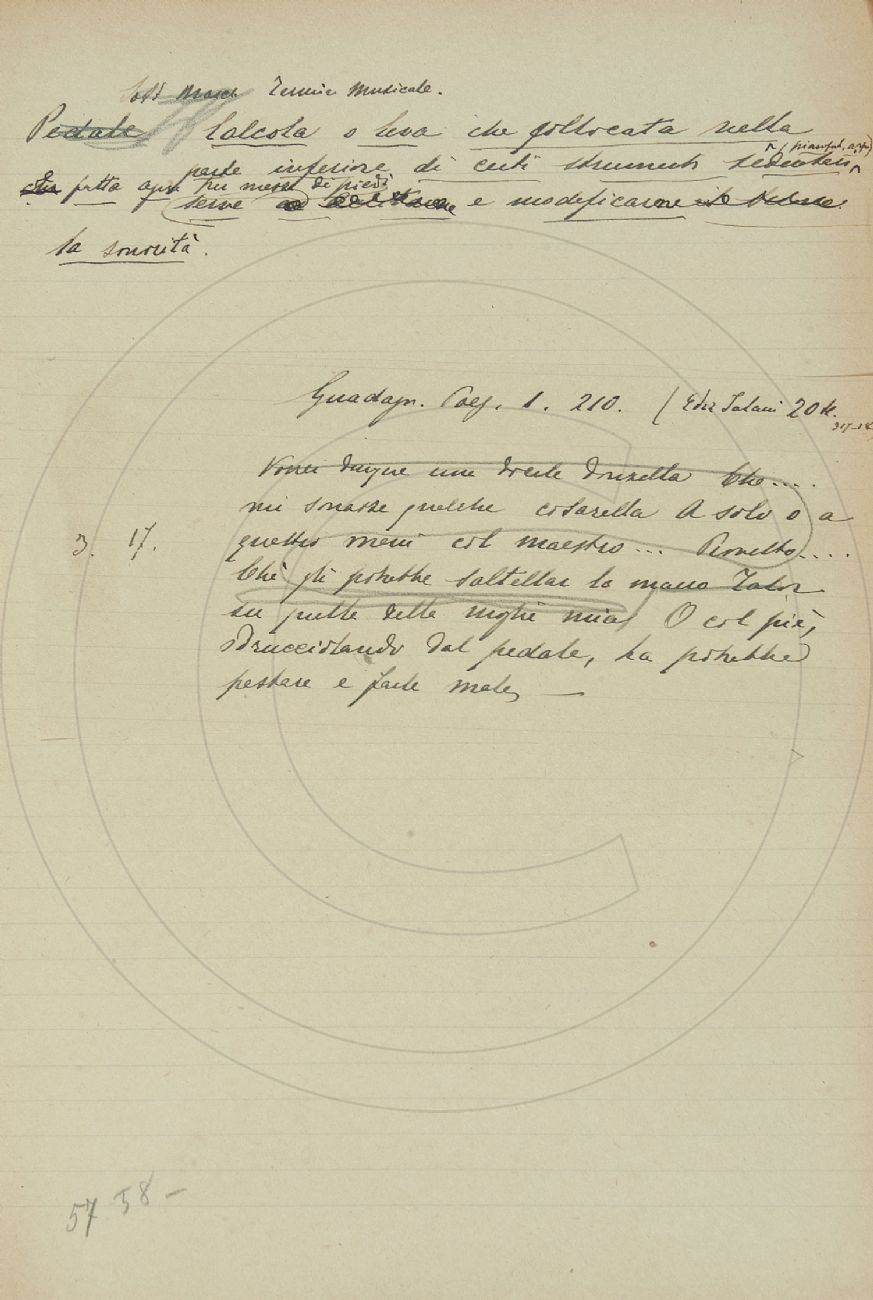 Sost. Masch. Termine Musicale.
Pedale Calcola o leva che collocata nella
(pianof., arpa)
parte inferiore di certi strumenti
fatta agire per mezzo di piedi
serve e modificarne
la sonorità.
Guadagn. Poes. 1. 210. (Ediz Salani 20
Vorrei dunque una docile donzella Che....
mi sonasse qualche cosarella A solo o a
3. 17. quattro mani col maestro... Provetto....
Chè gli potrebbe saltellar la mano Talor
su quelle delle moglie mia O col piè,
sdrucciolando dal pedale, La potrebbe
pestare e farle male,
57 58 –